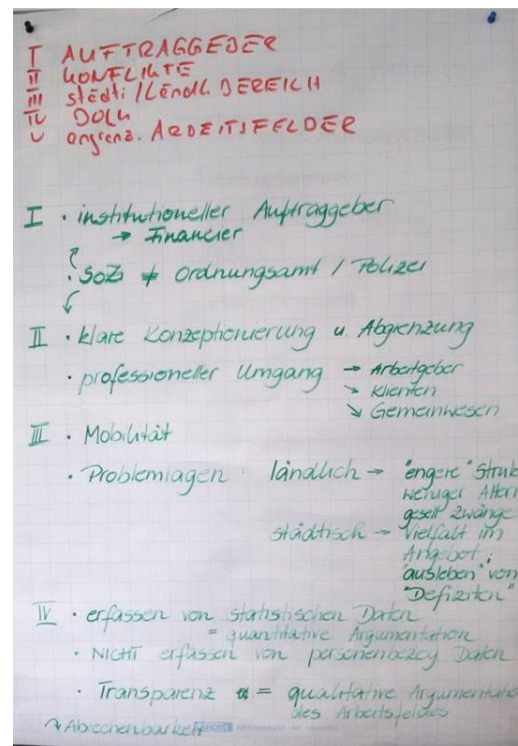 I AUFTRAGGEBER
II KONFLIKTE
III städti/ländl. BEREICH
IV DOKU
V angrenz. ARBEITSFELDER
I · institutioneller Auftraggeber
→ Financier
· SoZi ≠ Ordnungsamt / Polizei
II · klare Konzeptionierung u. Abgrenzung
· professioneller Umgang → Arbeitgeber
↘ Klienten
↘ Gemeinwesen
III · Mobilität
· Problemlagen · ländlich → "engere" Struk
weniger Altern
gesell. Zwänge
städtisch → Vielfalt im
Angebot;
"ausleben" von
"Defiziten"
IV · erfassen von statistischen Daten
= quantitative Argumentation
· NICHT erfassen von personenbezog Daten
· Transparenz = qualitative Argumentatio
des Arbeitsfeldes
↷ Abrechenbarkeit